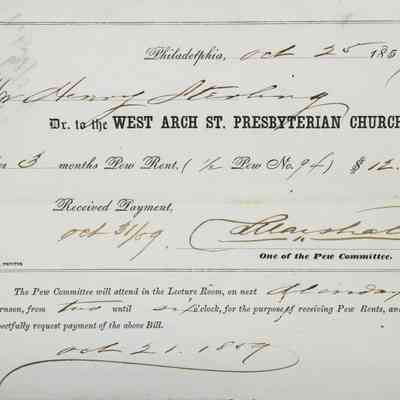 Philadelphia, Oct 25 185
Mr Henry Sterling
Dr. to the WEST ARCH ST. PRESBYTERIAN CHURCH
3 months Pew Rent, (1/2 Pew No. 94) $ 12.
Received Payment,
Oct 31/59 Marshall
One of the Pew Committee.
The Pew Committee will attend in the Lecture Room, on next Monday
ernoon, from two until six o'clock, for the purpose of receiving Pew Rents, and
pectfully request payment of the above Bill.
Oct 21. 1859